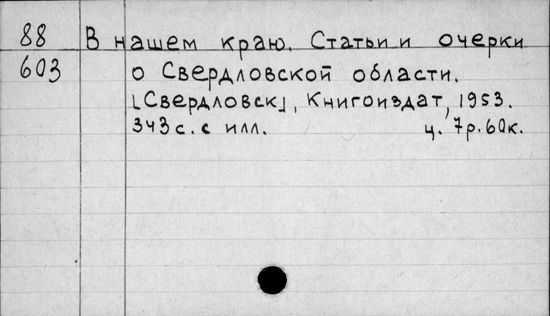 88 В нашем краю. Статьи и очерки
603 о Свердловской области.
[Свердловск], Книгоиздат, 1953.
343 с. с илл. ц. 7р.60к.